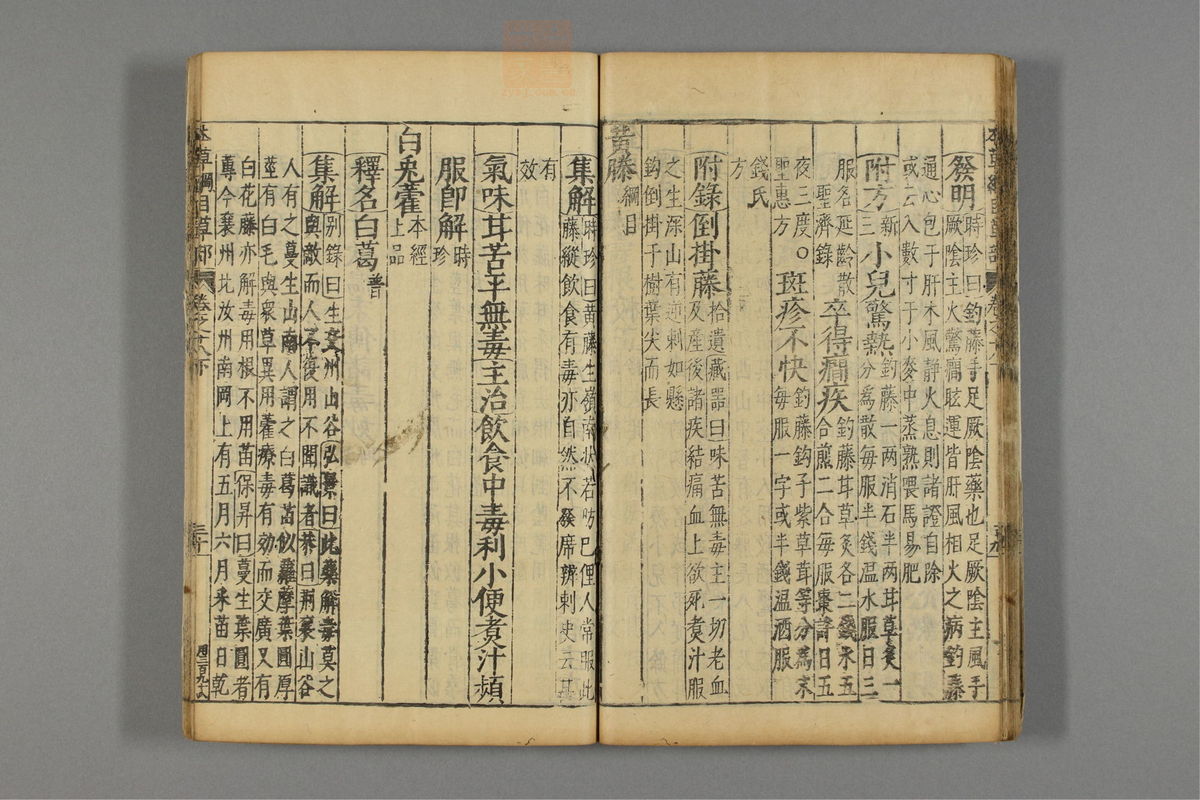 發明時珍曰鈎藤手足厥陰藥也足厥陰主風手
厥陰主火驚癇眩運皆肝風相火之病鈎藤
通心包于肝木風靜火息則諸證自除
或云入數寸于小麥中蒸熟喂馬易肥
附方新三小兒驚熱鈎藤一兩消石半兩甘草炙一
分為散每服半錢温水服日三
服名延齡散
聖濟錄
卒得癇疾鈎藤甘草炙各二錢水五
合煎二合每服棗許日五
夜三度○
聖惠方
斑疹不快鈎藤鈎子紫草茸等分為末
每服一字或半錢温酒服
錢氏
方
附錄倒掛藤拾遺藏器曰味苦無毒主一切老血
及產後諸疾結痛血上欲死煑汁服
之生深山有逆刺如懸
鈎倒掛于樹葉尖而長
黃藤綱目
集解時珍曰黃藤生嶺南狀若防已俚人常服此
藤縱飲食有毒亦自然不發席辨刺史云甚
有
效
氣味甘苦平無毒主治飲食中毒利小便煑汁頻
服卽解時
珍
白兎藿本經
上品
釋名白葛普
集解别錄曰生交州山谷弘景曰此藥解毒莫之
與敵而人不復用不聞識者恭曰荊襄山谷
人有之蔓生山南人謂之白葛苗似蘿摩葉圓厚
莖有白毛與衆草異用藿療毒有効而交廣又有
白花藤亦解毒用根不用苗保昇曰蔓生葉圓者
蓴今襄州北汝州南岡上有五月六月采苗日乾
本草綱目草部 卷之十八下